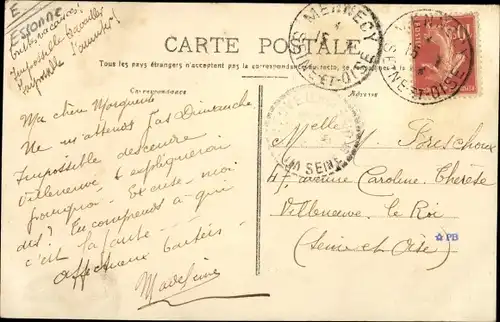 E
ESSONNE
Impossible travailler
CARTE POSTALE
Tous les pays étrangers n'acceptent pas la correspondance au recto, se
Correspondance
Adresse
MENNECY
SEINE-ET-OISE
Ma chère Margueritte
Ne m'attends pas Dimanche
Impossible descendre
Villeneuve t'expliquerai
pourquoi. Excuse-moi
dis? Tu comprends à qui
c'est la faute
Affectueux baisers
Madeleine
Melle M.
47, avenue Caroline Thérèse
Villeneuve le Roi
(Seine et Oise)
PB